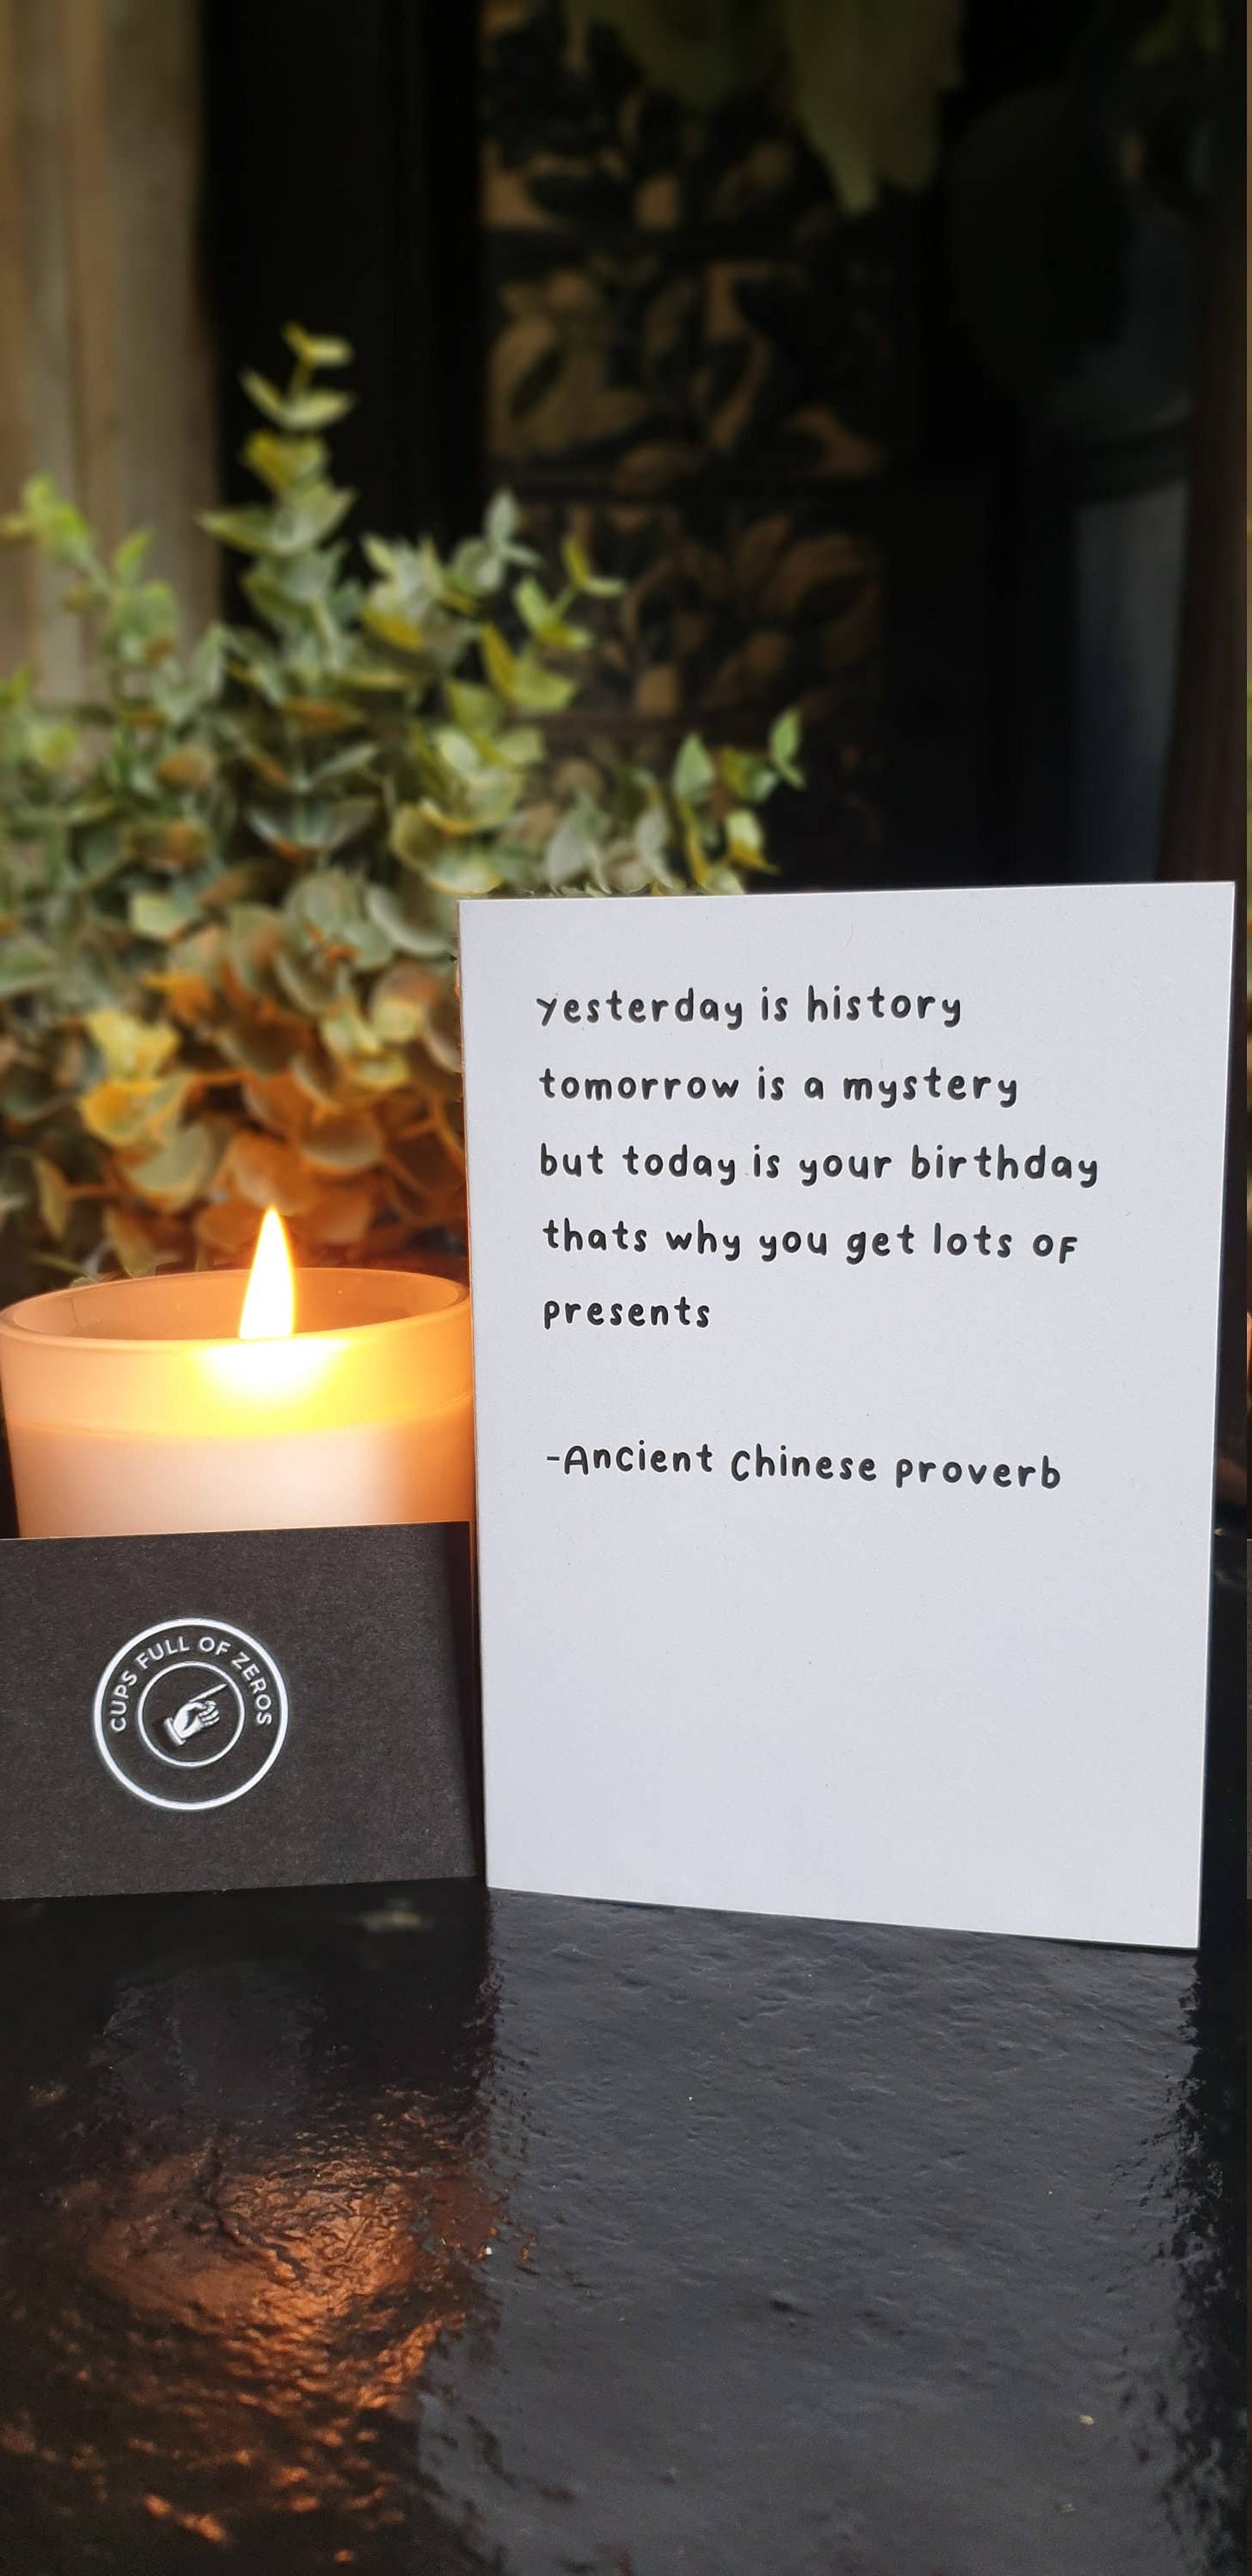 yesterday is history
tomorrow is a mystery
but today is your birthday
thats why you get lots of
presents
-Ancient Chinese proverb
CUPS FULL OF ZEROS